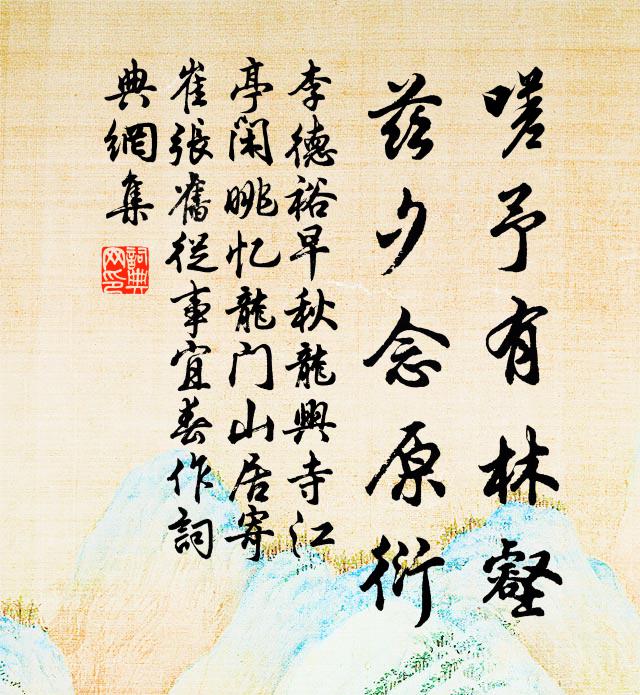 嗟予有林壑
兹夕念原衍
李德裕早秋龍興寺江
亭閑眺忆龍门山居寄
崔張舊從事宜春作詞
典網集
詞典網印